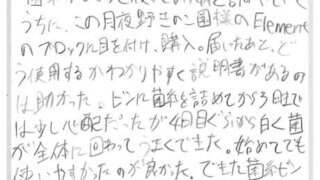 うちに、この月夜野きのこ園様のElement
のブロックに目を付け、購入。届いたあと、ど
う使用するかわかりやすく説明書があるの
は助かった。ビンに菌糸を詰めてから3日迄
は少し心配だったが4日目ぐらいから白く菌
が全体に回わってうまくできた。始めてでも
使いやすかったのが良かった。できた菌糸ビン